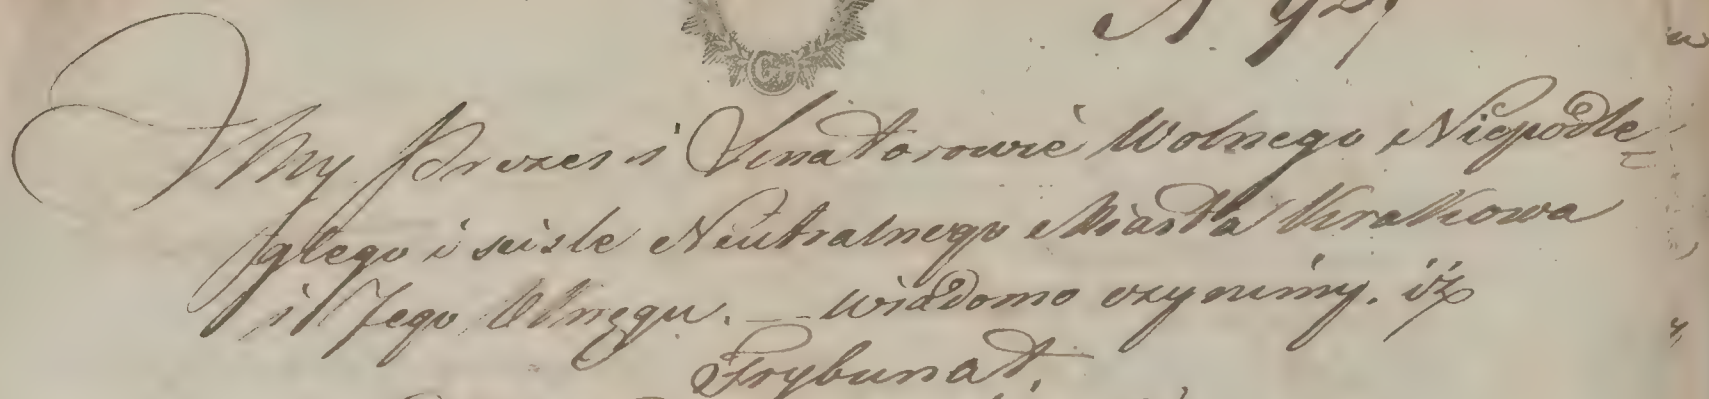 My Prezes i Senatorowie Wolnego Niepodle-
głego i scisle Neutralnego Miasta Krakowa
i Jego Okręgu. — wiadomo czynimy. iż
Trybunał.